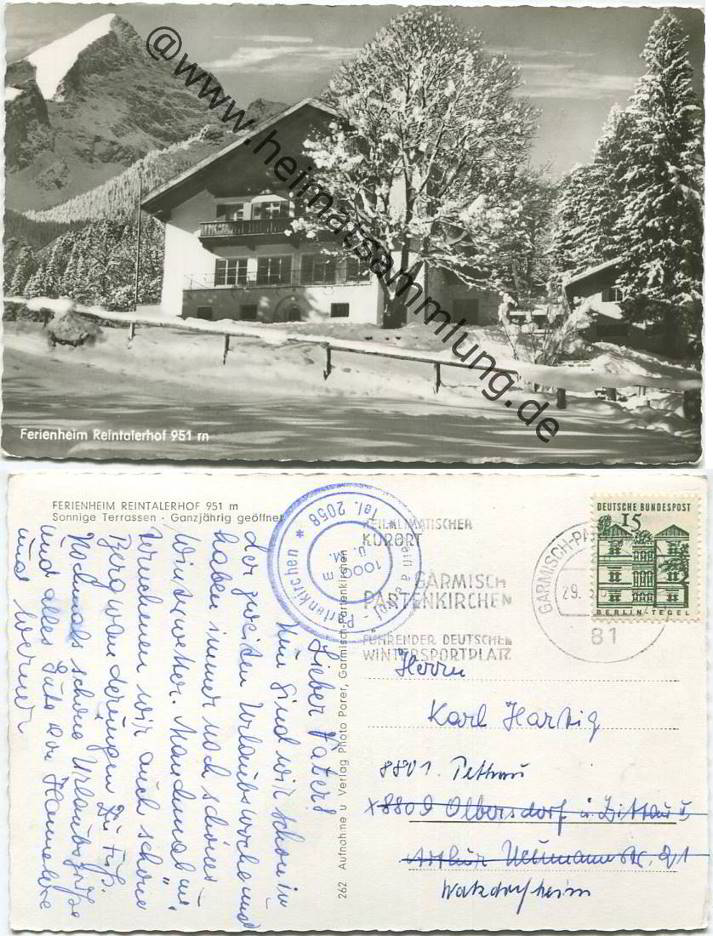 @www.heimatsammlung.de
Ferienheim Reintalerhof 951 m
FERIENHEIM REINTALERHOF 951 m
Sonnige Terrassen - Ganzjährig geöffnet
Tel. 2058
Partenkirchen
1000 m
ü. M.
HEILKLIMATISCHER
KURORT
GARMISCH
PARTENKIRCHEN
FÜHRENDER DEUTSCHER
WINTERSPORTPLATZ
GARMISCH-PA
29.
81
DEUTSCHE BUNDESPOST
15
BERLIN-TEGEL
262 Aufnahme u Verlag Photo Porer, Garmisch-Partenkirchen
Lieber Vater!
Nun sind wir schon in
der zweiten Urlaubswoche und
haben immer noch schönes
Winterwetter. Manchmal
wir auch schöne
Bergwanderungen zu Fuß.
Nochmals schöne Urlaubsgrüße
und alles Gute von Hannelore
und Werner
Herrn
Karl Hartig
8801. Pethau
x8809 Olbersdorf ü. Zittau
Arthur